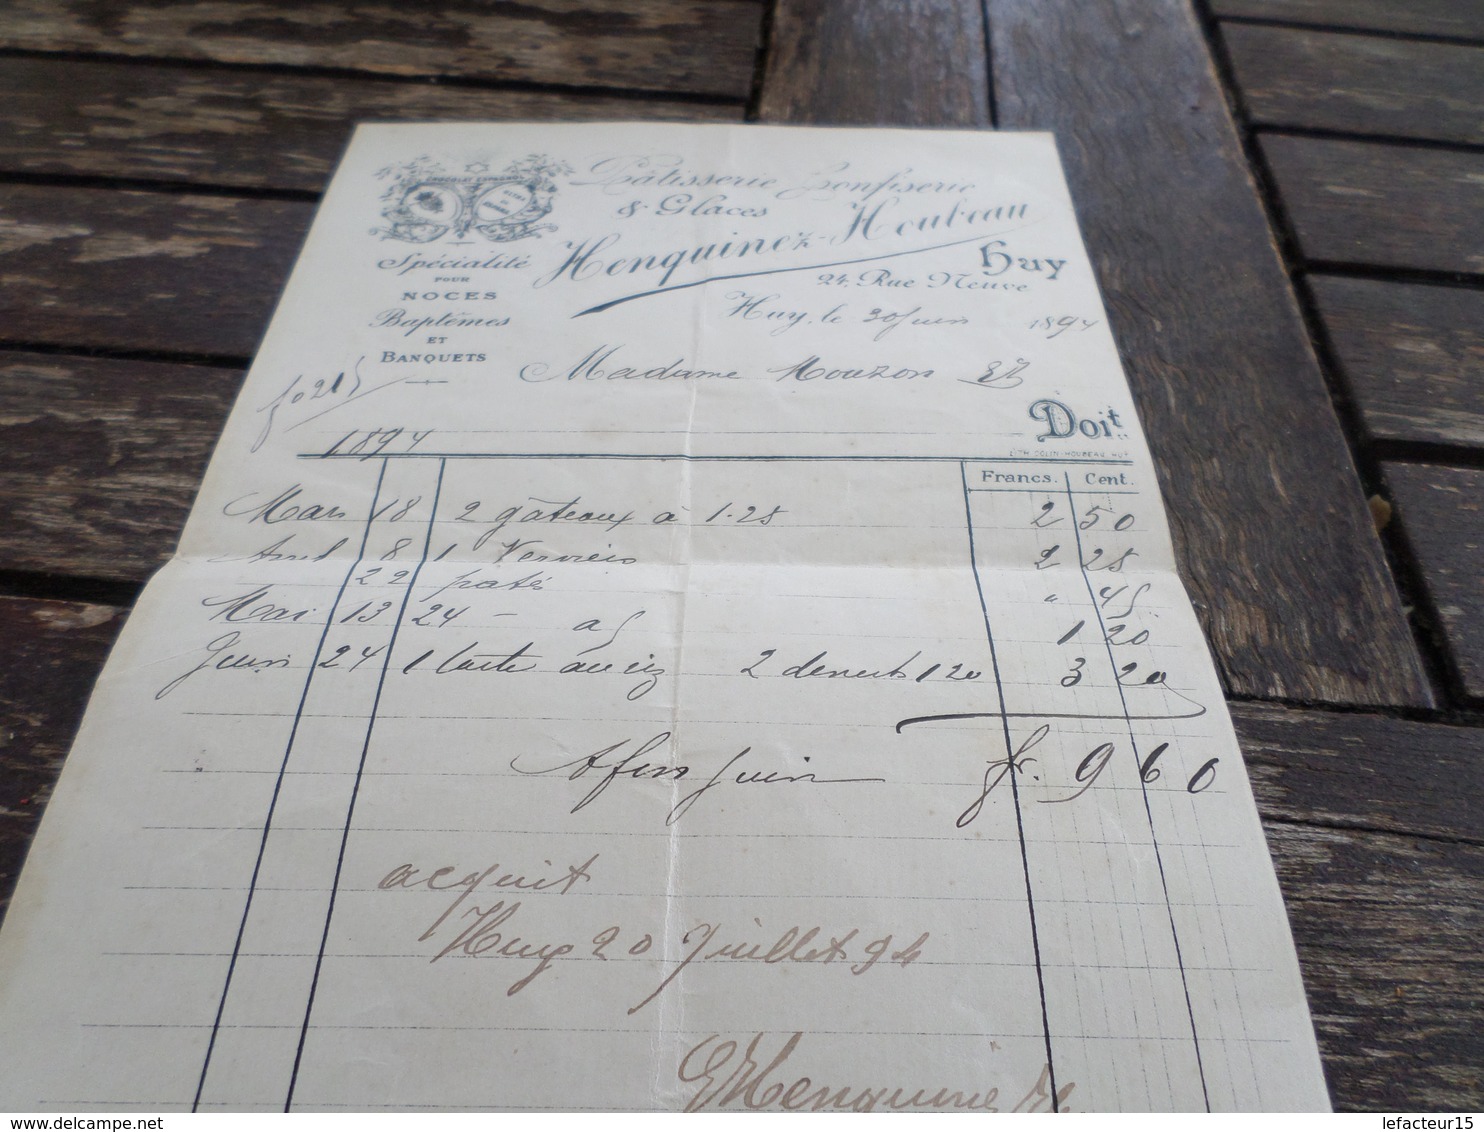 CHOCOLAT ESPAGNOL
Pâtisserie Confiserie
& Glaces
Henquinez-Houbeau
Huy
24, Rue Neuve
Spécialité
POUR
NOCES
Baptêmes
ET
BANQUETS
Huy, le 30 Juin 1894
Madame Mouzon
fo 215
Doit
LITH. COLIN-HOUBEAU, HUY
1894
Francs. Cent.
Mars 18 2 gâteaux à 1.25 2 50
Avril 8 1 Verviers 2 25
22 paté " 45
Mai 13 24 - 1 20
Juin 24 1 tarte au riz 2 1 20 3 20
A fin Juin fr. 9 60
acquit
Huy 20 Juillet 94
Henquinez
lefacteur15